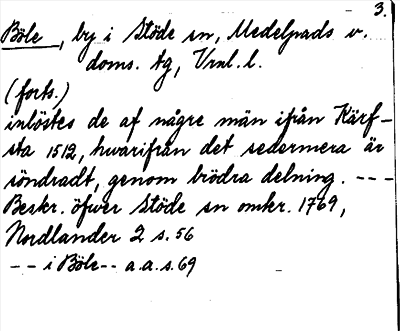 3.
Böle, by i Stöde sn, Medelpads v.
doms. tg, Vrnl. l.
(forts.)
inlöstes de af någre män ifrån Kärf-
sta 1512, hwarifrån det sedermera är
söndradt, genom brödra delning. ---
Beskr. öfwer Stöde sn omkr. 1769,
Nordlander 2 s. 56
-- i Böle -- a.a.s. 69